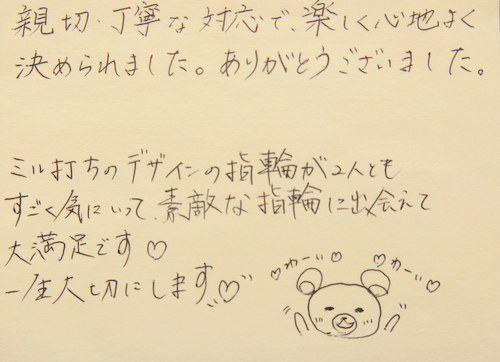 親切・丁寧な対応で、楽しく心地よく
決められました。ありがとうございました。
ミル打ちのデザインの指輪が2人とも
すごく気にいって、素敵な指輪に出会えて
大満足です♡
一生大切にします♡
♡わーい♡ ♡わーい♡